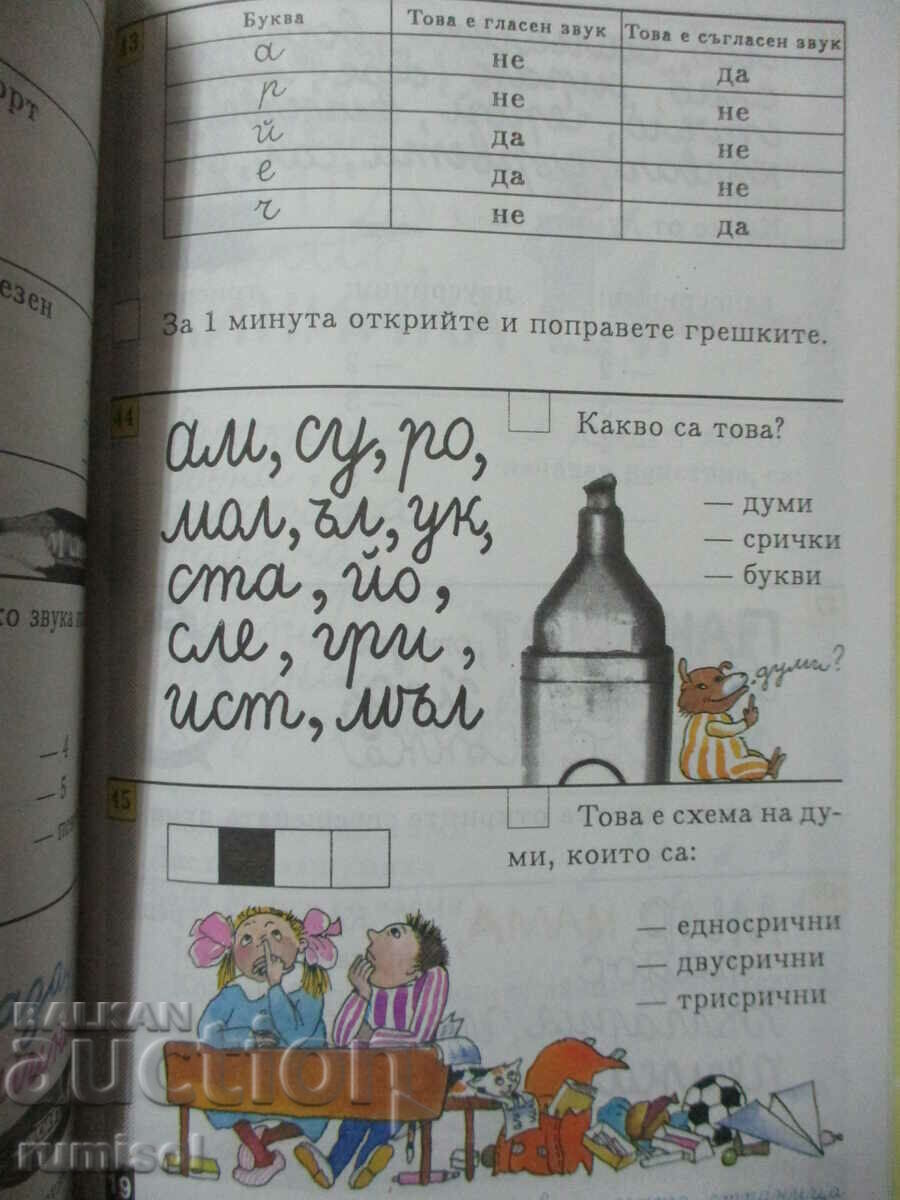 43
Буква Това е гласен звук Това е съгласен звук
а не да
р не не
й да не
е да не
ч не да
За 1 минута открийте и поправете грешките.
44
ам, су, ро,
мол, ъл, ук,
ста, йо,
сле, гри,
ист, мъл
Какво са това?
— думи
— срички
— букви
думи?
45
Това е схема на ду-
ми, които са:
— едносрични
— двусрични
— трисрични
орт
езен
ко звука
— 4
— 5
BALKAN
auction
rumisol
19